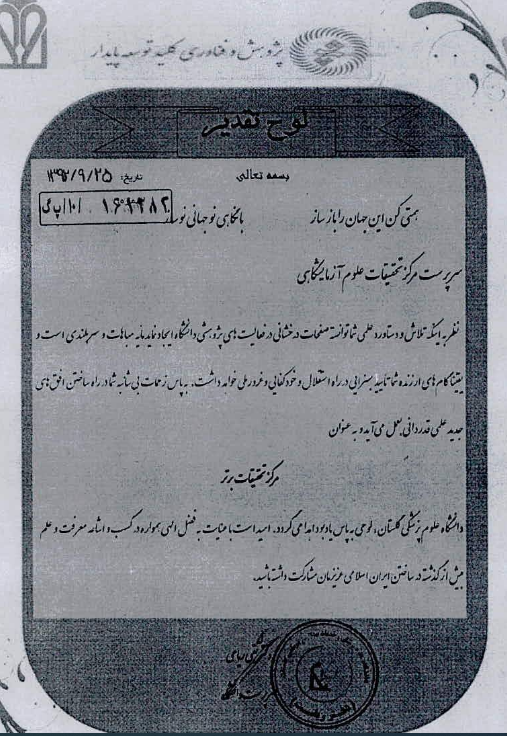 پژوهش و فناوری کلید توسعه پایدار
لوح تقدیر
بسمه تعالی
تاریخ: ۱۳۹۲/۹/۲۵
همتی کن این جهان را باز ساز
با نگاهی نو جهانی نو بساز
سرپرست مرکز تحقیقات علوم آزمایشگاهی
نظر به اینکه تلاش و دستاورد علمی شما توانسته صفحات درخشانی در فعالیت های پژوهشی دانشگاه ایجاد نماید مایه مباهات و سربلندی است و
یقینا گام های ارزنده شما تاثیر بسزایی در راه استقلال و خودکفایی و غرور ملی خواهد داشت. به پاس زحمات بی شائبه شما در راه ساختن افق های
جدید علمی قدردانی بعمل می آید و به عنوان
مرکز تحقیقات برتر
دانشگاه علوم پزشکی گلستان، لوحی به پاس یادبود اهدا می گردد. امید است با عنایت به فضل الهی همواره در کسب و اشاعه معرفت و علم
بیش از گذشته در ساختن ایران اسلامی عزیزمان مشارکت داشته باشید.